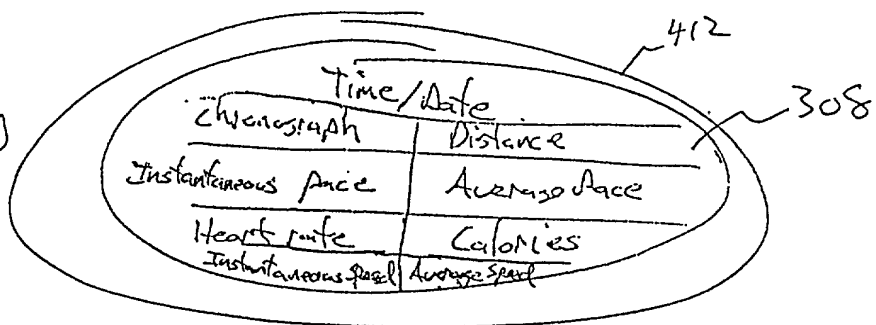 412
308
Time/Date
Chronograph Distance
Instantaneous pace Average Pace
Heart rate Calories
Instantaneous Speed Average Speed